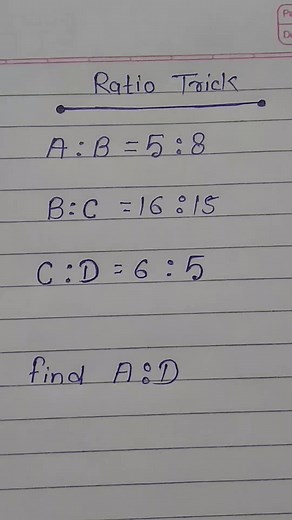 Ratio Trick
A:B = 5:8
B:C = 16:15
C:D = 6:5
find A:D